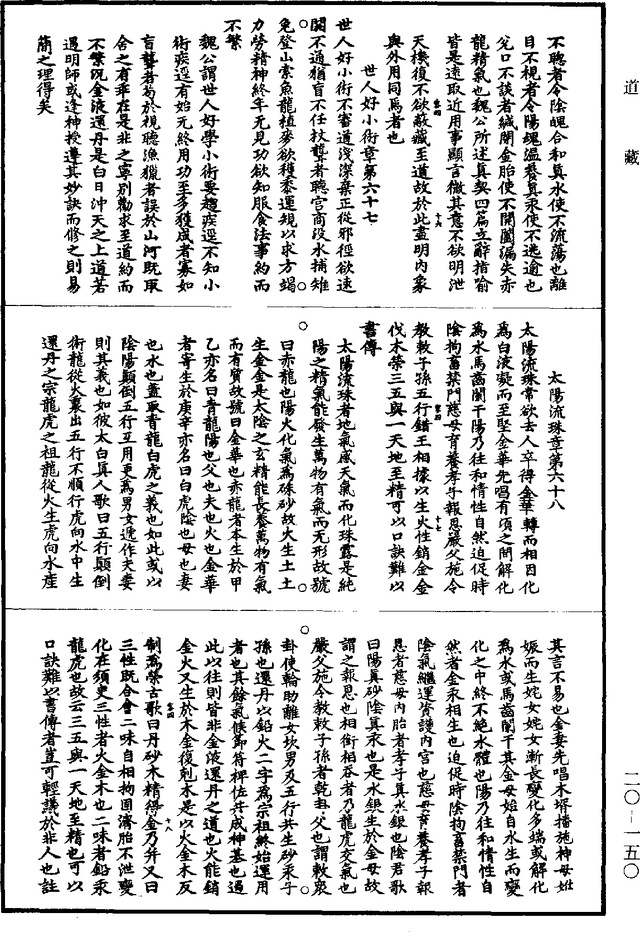 道藏
不聽者令陰魄合和真水使不流蕩也離
目不視者令陽魂溫養真汞使不逃逾也
兌口不談者緘閉金胎使不開闔漏失赤
龍精氣也魏公所述真契四篇立辭指喻
皆是遠取近用事顯言微其意不欲明泄
天機復不欲蔽藏至道故於此盡明內象
與外用同焉者也
世人好小術章第六十七
世人好小術不審道淺深棄正從邪徑欲速
閼不通猶盲不任杖聾者聽宮商沒水捕雉
兔登山索魚龍植麥欲穫黍運規以求方竭
力勞精神終年无見功欲知服食法事約而
不繁
魏公謂世人好學小術要趨疾逕不知小
術疾逕有始无終用功至多獲成者寡如
盲聾者苟於視聽漁獵者誤於山河既取
舍之有乖在是非之寧別勸求至道約而
不繁況金液還丹是白日沖天之上道若
遇明師或逢神授遵其妙訣而修之則易
簡之理得矣
太陽流珠章第六十八
太陽流珠常欲去人卒得金華轉而相因化
為白液凝而至堅金華先唱有頃之間解化
為水馬齒闌干陽乃往和情性自然迫促時
陰拘畜禁門慈母育養孝子報恩嚴父施令
教敕子孫五行錯王相據以生火性銷金金
伐木榮三五與一天地至精可以口訣難以
書傳
太陽流珠者地氣感天氣而化珠露是純
陽之精氣能發生萬物有氣而无形故號
曰赤龍也陽火化氣為硃砂故火生土土
生金金是太陰之玄精能長養萬物有氣
而有質故號曰金華也赤龍者本生於甲
乙亦名曰青龍陽也父也夫也火也金華
者寄生於庚辛亦名曰白虎陰也母也妻
也水也蓋取青龍白虎之義也如此或以
陰陽顛倒五行互用更為男女遞作夫妻
則其義也如彼太白真人歌曰五行顛倒
術龍從火裏出五行不順行虎向水中生
還丹之宗龍虎之祖龍從火生虎向水產
其言不易也金妻先唱木壻播施神母妊
娠而生姹女姹女漸長變化多端或解化
為水或馬齒闌干其金母始自水生而變
化之中終不絕水體也陽乃往和情性自
然者金汞相生也迫促時陰拘畜禁門者
陰氣繼運資護內宮也慈母育養孝子報
恩者慈母內胎者孝子真水銀也陰君歌
曰陽真砂陰真汞也是水銀生於金母故
謂之報恩也相銜相吞者乃龍虎交氣也
嚴父施令教敕子孫者乾卦父也謂敕衆
卦使輪助離女坎男及五行共生砂汞子
孫也還丹以鉛火二字為宗祖終始運用
者也其餘氣候節符裨佐共成神基也過
此以往則皆非金液還丹之道也火能銷
金火又生於木金復剋木是以火金木反
制為榮古歌曰丹砂木精得金乃并又曰
三性既合會二味自相拘固濟胎不泄變
化在須臾三性者火金木也二味者鉛汞
龍虎也故云三五與一天地至精也可以
口訣難以書傳者豈可輕議於非人也註
二〇－一五〇